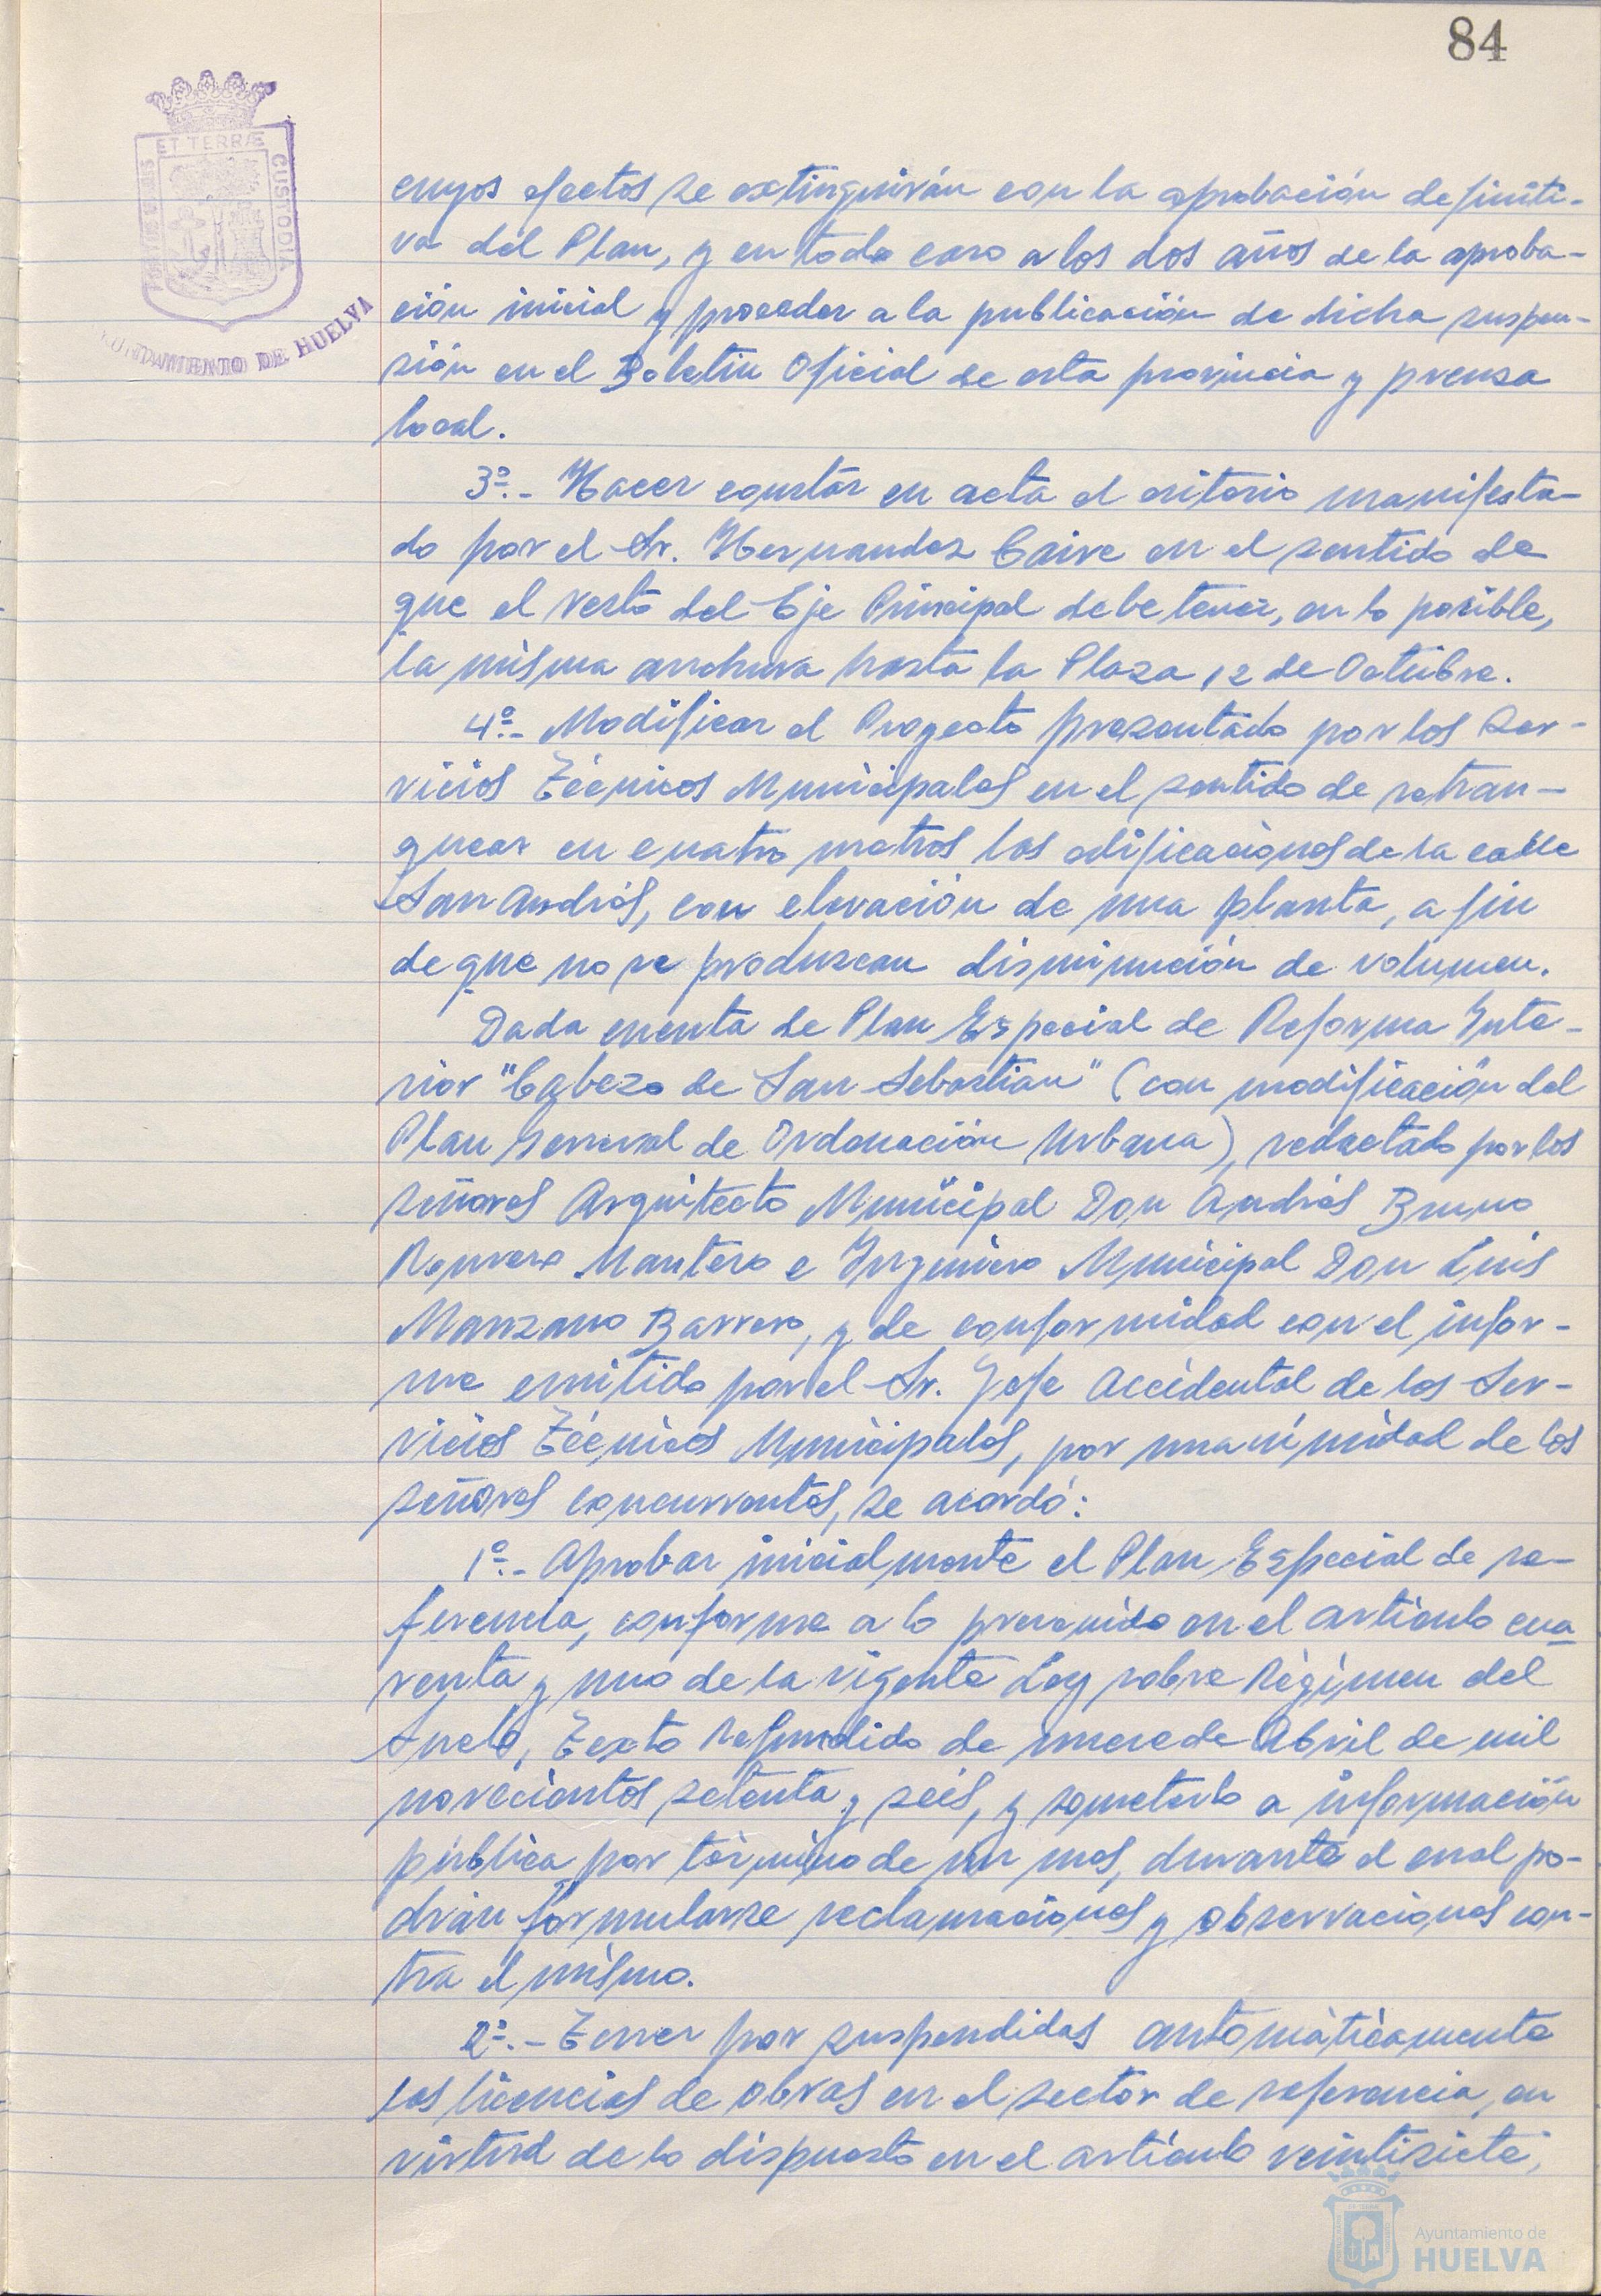 84
PORTVS MARIS
ET TERRÆ
CUSTODIA
AYUNTAMIENTO DE HUELVA
cuyos efectos se extinguirán con la aprobación definiti-
va del Plan, y en todo caso a los dos años de la aproba-
ción inicial y proceder a la publicación de dicha suspen-
sión en el Boletin Oficial de esta provincia y prensa
local.
3º.- Hacer constar en acta el criterio manifesta-
do por el Sr. Hernandez Caire en el sentido de
que el resto del Eje Principal debe tener, en lo posible,
la misma anchura hasta la Plaza 12 de Octubre.
4º.- Modificar el Proyecto presentado por los Ser-
vicios Técnicos Municipales en el sentido de retran-
quear en cuatro metros las edificaciones de la calle
San Andrés, con elevación de una planta, a fin
de que no se produzcan disminución de volumen.
Dada cuenta de Plan Especial de Reforma Inte-
rior "Cabezo de San Sebastian" (con modificación del
Plan General de Ordenación Urbana), redactado por los
señores Arquitecto Municipal Don Andrés Bruno
Romero Mantero e Ingeniero Municipal Don Luis
Manzano Barrero, y de conformidad con el infor-
me emitido por el Sr. Jefe Accidental de los Ser-
vicios Técnicos Municipales, por unanimidad de los
señores concurrentes, se acordó:
1º.- Aprobar inicialmente el Plan Especial de re-
ferencia, conforme a lo prevenido en el articulo cua
renta y uno de la vigente Ley sobre Régimen del
Suelo, Texto Refundido de nueve de Abril de mil
novecientos setenta y seis, y someterlo a información
pública por término de un mes, durante el cual po-
drán formularse reclamaciones y observaciones con-
tra el mismo.
2º.- Tener por suspendidas automáticamente
las licencias de obras en el sector de referencia, en
virtud de lo dispuesto en el artículo veintisiete,
Ayuntamiento de
HUELVA